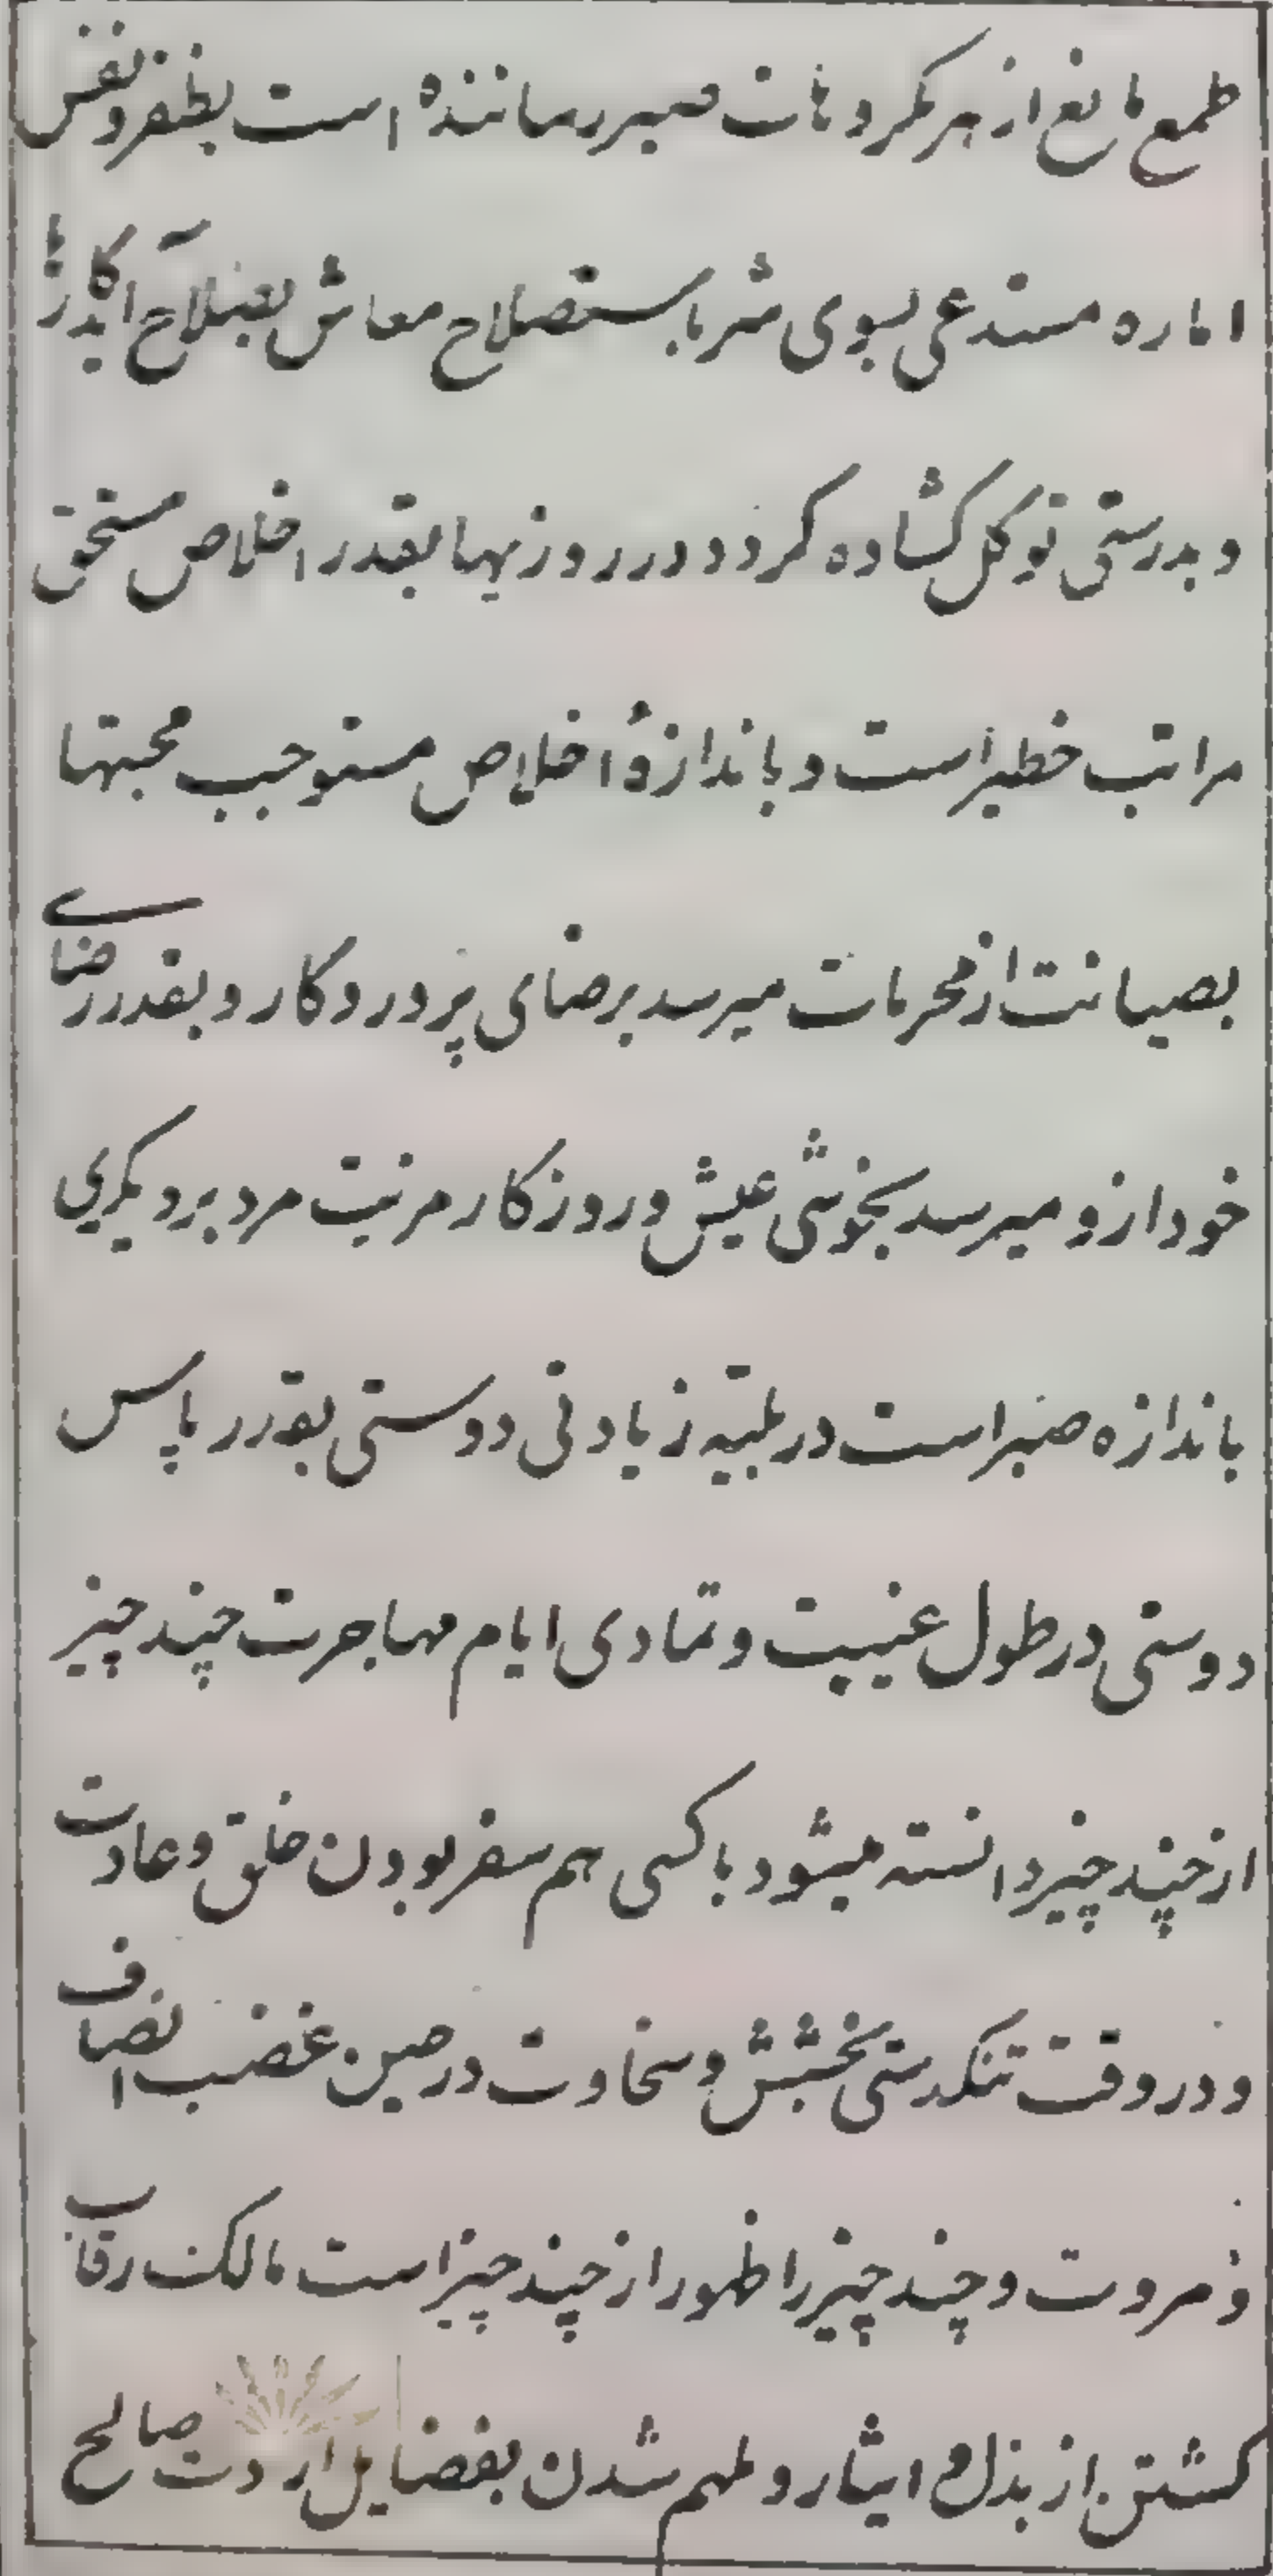 طمع مانع از هر مکروهات صبر رساننده است بظفر و نفس
اماره مستدعی بسوی شر باستصلاح معاش بصلاح آید کارها
و بدرستی توکل کشاده کردد در روزیها بقدر اخلاص مستحق
مراتب خطیر است و باندازهٔ اخلاص مستوجب محبتها
بصیانت از محرمات میرسد برضای پروردکار و بقدر رضای
خود ازو میرسد بخوشی عیش و روزکار مزیت مرد بر دیکری
باندازه صبر است در بلیّه زیادتی دوستی بقدر پاس
دوستی در طول غیبت و تمادی ایام مهاجرت چند چیز
از چند چیز دانسته میشود با کسی هم سفر بودن خلق و عادت
و در وقت تنکدستی بخشش و سخاوت در حین غضب انصاف
و مروت و چند چیز را ظهور از چند چیز است مالک رقاب
کشتن از بذل و ایثار و ملهم شدن بفضایل از دت صالح